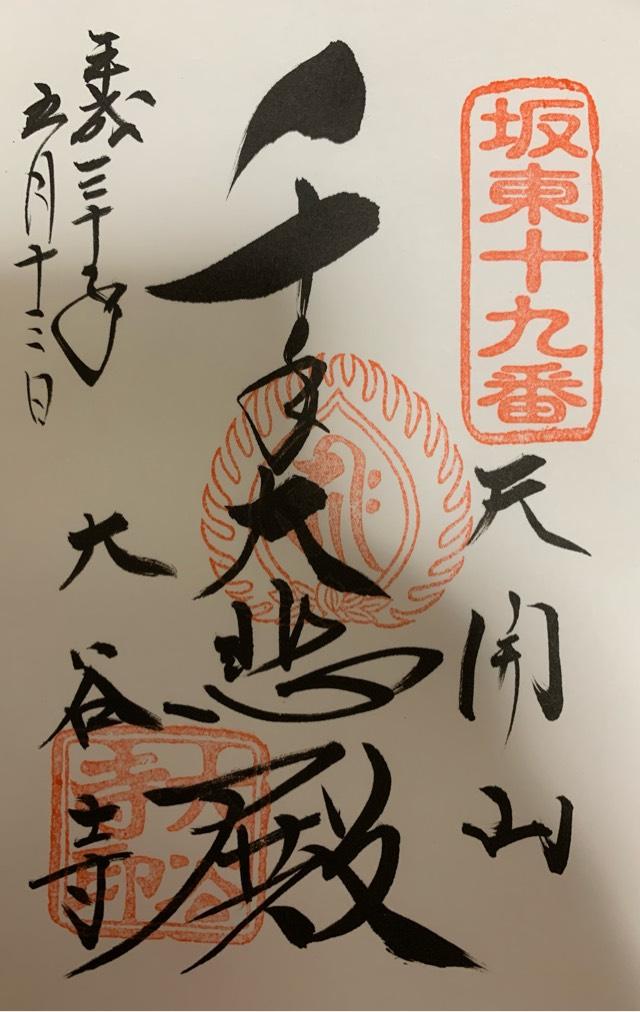 坂東十九番
天開山
千手大悲殿
平成三十年
五月十三日
大谷寺
大谷寺印